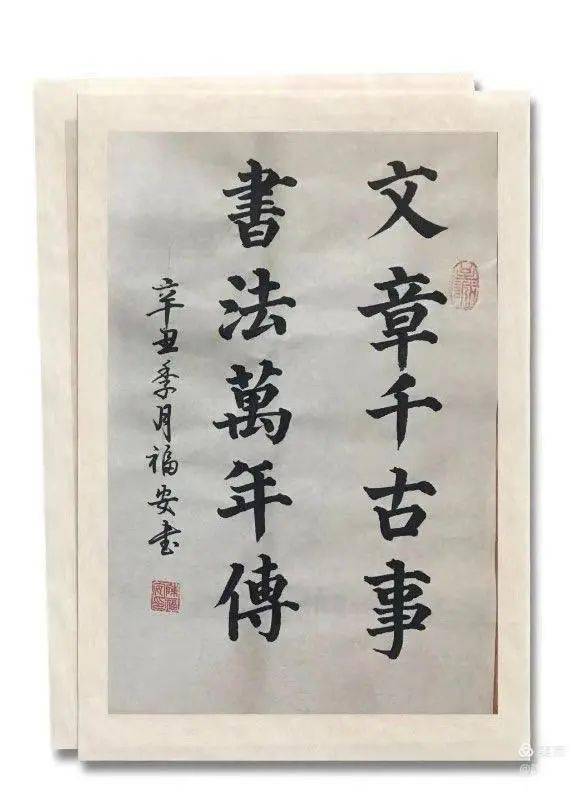 文章千古事
書法萬年傳
辛丑季月福安书